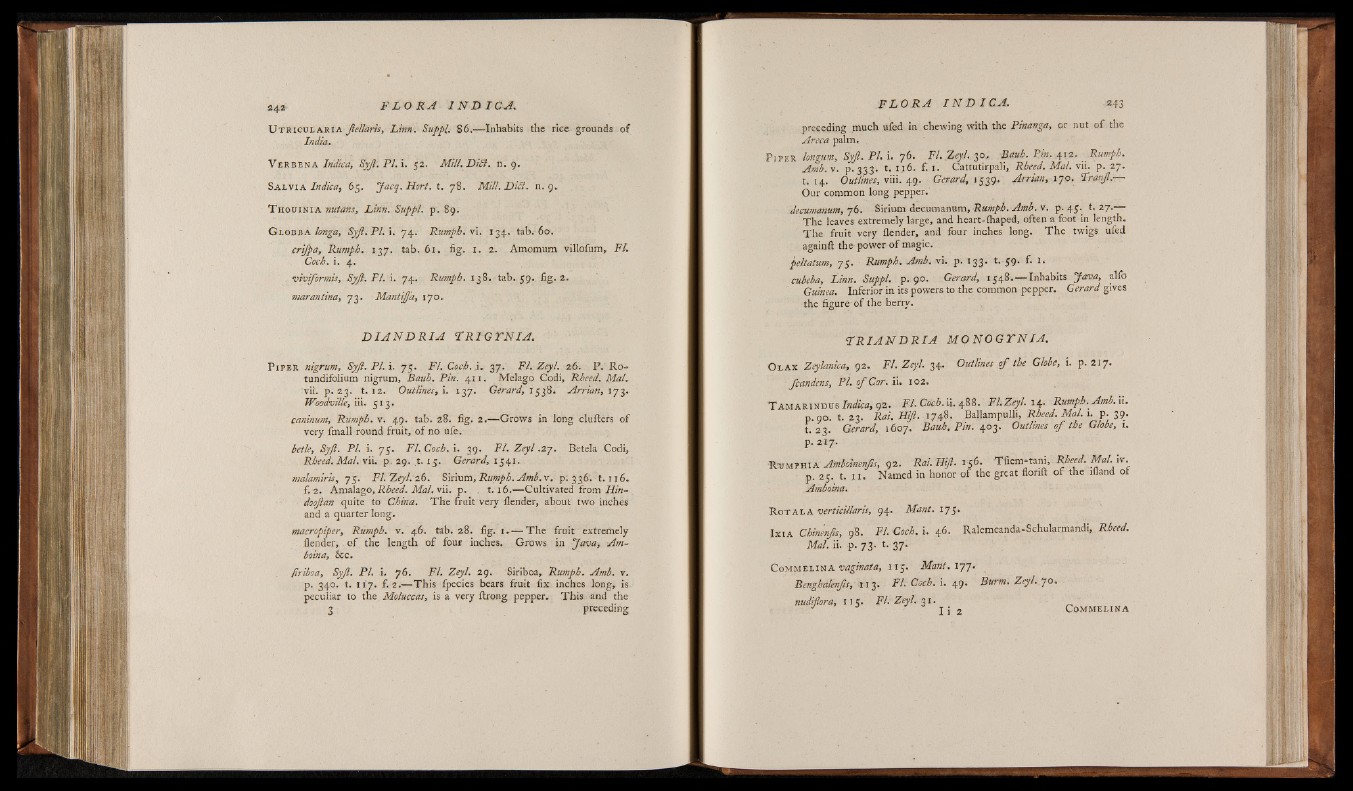 242 FLORA INDICA.
UTRICULARIA ſtellaris, Linn. Suppl. 86.—Inhabits the rice grounds of
India.
VERBENA Indica, Syſt. Pl. i. 52. Mill. Dict. n. 9.
SALVIA Indica, 65. Jacq. Hort. t. 78. Mill. Dict. n. 9.
THOUINIA nutans, Linn. Suppl. p. 89.
GLOBBA longa, Syſt. Pl. i. 74. Rumph. vi. 134. tab. 60.
criſpa, Rumph. 137. tab. 61. fig. 1. 2. Amomum villoſum, Fl.
Coch. i. 4.
viviformis, Syſt. Fl. i. 74. Rumph. 138. tab. 59. fig. 2.
marantina, 73. Mantiſſa, 170.
DIANDRIA TRIGYNIA.
PIPER nigrum, Syſt. Pl. i. 75. Fl. Coch. i. 37. Fl. Zeyl. 26. P. Ro-
tundifolium nigrum, Bauh. Pin. 411. Melago Codi, Rheed. Mal.
vii. p. 23. t. 12. Outlines, i. 137. Gerard, 1538. Arrian, 173.
Woodville, iii. 513.
caninum, Rumph. v. 49. tab. 28. fig. 2.—Grows in long cluſters of
very ſmall round fruit, of no uſe.
betle, Syſt. Pl. i. 75. Fl. Coch. i. 39. Fl. Zeyl .27. Betela Codi,
Rheed. Mal. vii. p. 29. t. 15. Gerard, 1541.
malamiris, 75. Fl. Zeyl. 26. Sirium, Rumph. Amb. v. p. 336. t. 116.
f. 2. Amalago, Rheed. Mal. vii. p. t. 16.—Cultivated from Hin-
dooſtan quite to China. The fruit very ſlender, about two inches
and a quarter long.
macropiper, Rumph. v. 46. tab. 28. fig. 1.—The fruit extremely
ſlender, of the length of four inches. Grows in Java, Am-
boina, &c.
ſiriboa, Syſt. Pl. i. 76. Fl. Zeyl. 29. Siriboa, Rumph. Amb. v.
p. 340. t. 117. f. 2.—This ſpecies bears fruit ſix inches long, is
peculiar to the Moluccas, is a very ſtrong pepper. This and the
3 preceding
FLORA INDICA. 243
preceding much uſed in chewing with the Pinanga, or nut of the
Areca palm.
PIPER longum, Syſt. Pl. i. 76. Fl. Zeyl. 30. Bauh. Pin. 412. Rumph.
Amb. v. p. 333. t. 116. f. 1. Cattutirpali, Rheed. Mal. vii. p. 27.
t. 14. Outlines, viii. 49. Gerard, 1539. Arrian, 170. Tranſl.—
Our common long pepper.
decumanum, 76. Sirium decumanum, Rumph. Amb. v. p. 45. t. 27.—
The leaves extremely large, and heart-ſhaped, often a foot in length.
The fruit very ſlender, and four inches long. The twigs uſed
againſt the power of magic.
peltatum, 75. Rumph. Amb. vi. p. 133. t. 59. f. 1.
cubeba, Linn. Suppl. p. 90. Gerard, 1548.—Inhabits Java, alſo
Guinea. Inferior in its powers to the common pepper. Gerard gives
the figure of the berry.
TRIANDRIA MONOGYNIA.
OLAX Zeylanica, 92. Fl. Zeyl. 34. Outlines of the Globe, i. p. 217.
ſcandens, Pl. of Cor. ii. 102.
TAMARINDUS Indica, 92. Fl. Coch. ii. 488. Fl. Zeyl. 14. Rumph. Amb. ii.
p. 90. t. 23. Rai. Hiſt. 1748. Ballampulli, Rheed. Mal. i. p. 39.
t. 23. Gerard, 1607. Bauh. Pin. 403. Outlines of the Globe, i.
p. 217.
RUMPHIA Amboinenſis, 92. Rai. Hiſt. 156. Tſiem-tani, Rheed. Mal. iv.
p. 25. t. 11. Named in honor of the great floriſt of the iſland of
Amboina.
ROTALA verticillaris, 94. Mant. 175.
IXIA Chinenſis, 98. Fl. Coch. i. 46. Ralemcanda-Schularmandi, Rheed.
Mal. ii. p. 73. t. 37.
COMMELINA vaginata, 115. Mant. 177.
Benghalenſis, 113. Fl. Coch. i. 49. Burm. Zeyl. 70.
nudiflora, 115. Fl. Zeyl. 31.
I i 2 COMMELINA